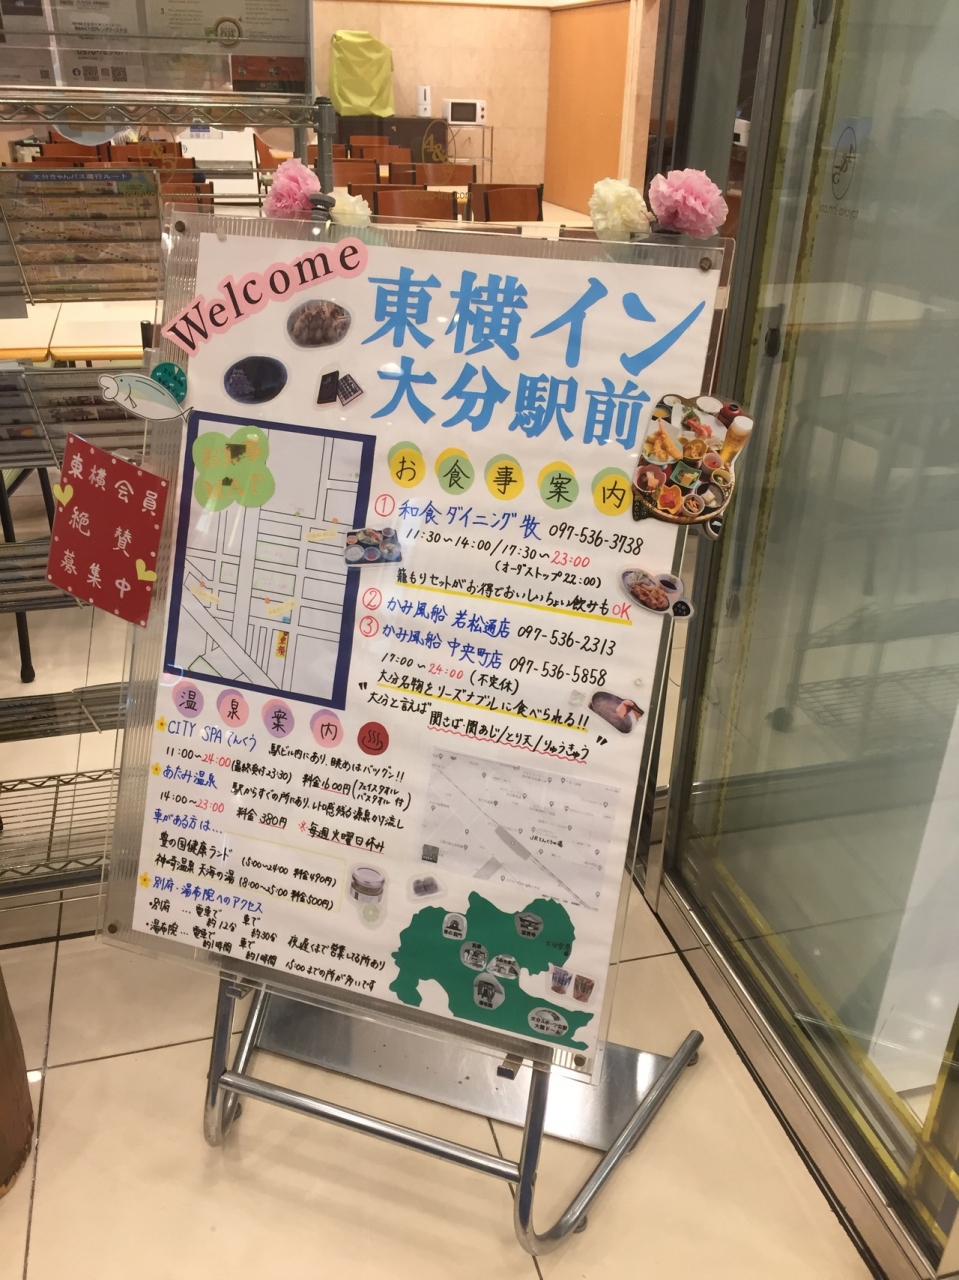 大分きゃんバス運行ルート
Welcome
東横イン
大分駅前
東横会員
絶賛
募集中
お食事案内
① 和食ダイニング 牧 097-536-3738
11:30~14:00/17:30~23:00
(オーダストップ22:00)
籠もりセットがお得でおいしい ちょい飲みもOK
② かみ風船 若松通店 097-536-2313
③ かみ風船 中央町店 097-536-5858
17:00~24:00 (不定休)
"大分名物をリーズナブルに食べられる!!
大分と言えば 関さば・関あじ/とり天/りゅうきゅう"
東横
温泉案内
CITY SPA てんくう 駅ビル内にあり、眺めはバツグン!!
11:00~24:00(最終受付23:30) 料金1600円(フェイスタオル バスタオル付)
あたみ温泉 駅からすぐの所にあり、レトロ感残る源泉かけ流し
14:00~23:00 料金380円 ※毎週火曜日休み
車がある方は…
豊の国健康ランド
神崎温泉 天海の湯
別府・湯布院へのアクセス
・別府 … 電車で 約12分 車で 約30分 夜遅くまで営業してる所あり
・湯布院… 電車で 約1時間 車で 約1時間 15:00までの所が多いです
JRおおいたシティ